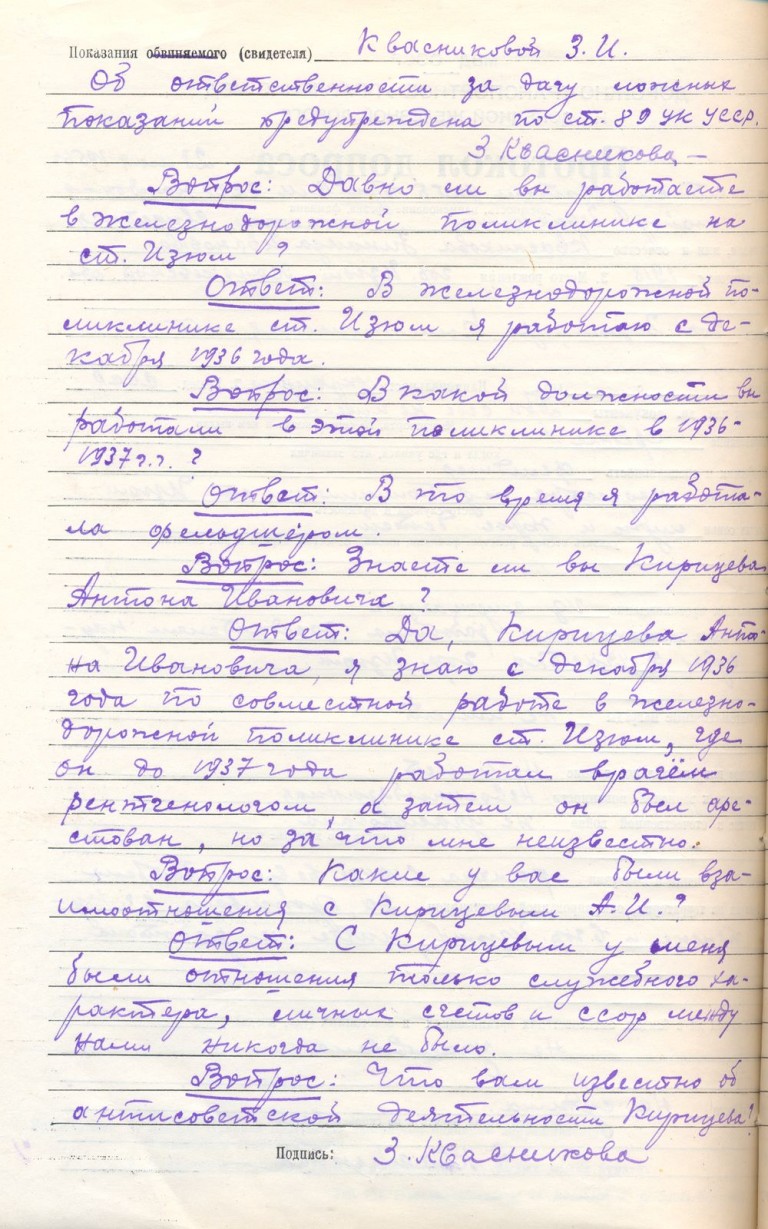 Показания обвиняемого (свидетеля) Квасниковой З.И.
Об ответственности за дачу ложных
показаний предупреждена по ст. 89 УК УССР.
З Квасникова
Вопрос: Давно ли вы работаете
в железнодорожной поликлинике на
ст. Изюм ?
Ответ: В железнодорожной по-
ликлинике ст. Изюм я работаю с де-
кабря 1936 года.
Вопрос: В какой должности вы
работали в этой поликлинике в 1936-
1937 г.г. ?
Ответ: В это время я работа-
ла фельдшером.
Вопрос: Знаете ли вы Кирицева
Антона Ивановича ?
Ответ: Да, Кирицева Анто-
на Ивановича, я знаю с декабря 1936
года по совместной работе в железно-
дорожной поликлинике ст. Изюм, где
он до 1937 года работал врачём
рентгенологом, а затем он был аре-
стован, но за что мне неизвестно.
Вопрос: Какие у вас были вза-
имоотношения с Кирицевым А.И.?
Ответ: С Кирицевым у меня
были отношения только служебного ха-
рактера, личных счетов и ссор между
нами никогда не было.
Вопрос: Что вам известно об
антисоветской деятельности Кирицева?
Подпись: З. Квасникова